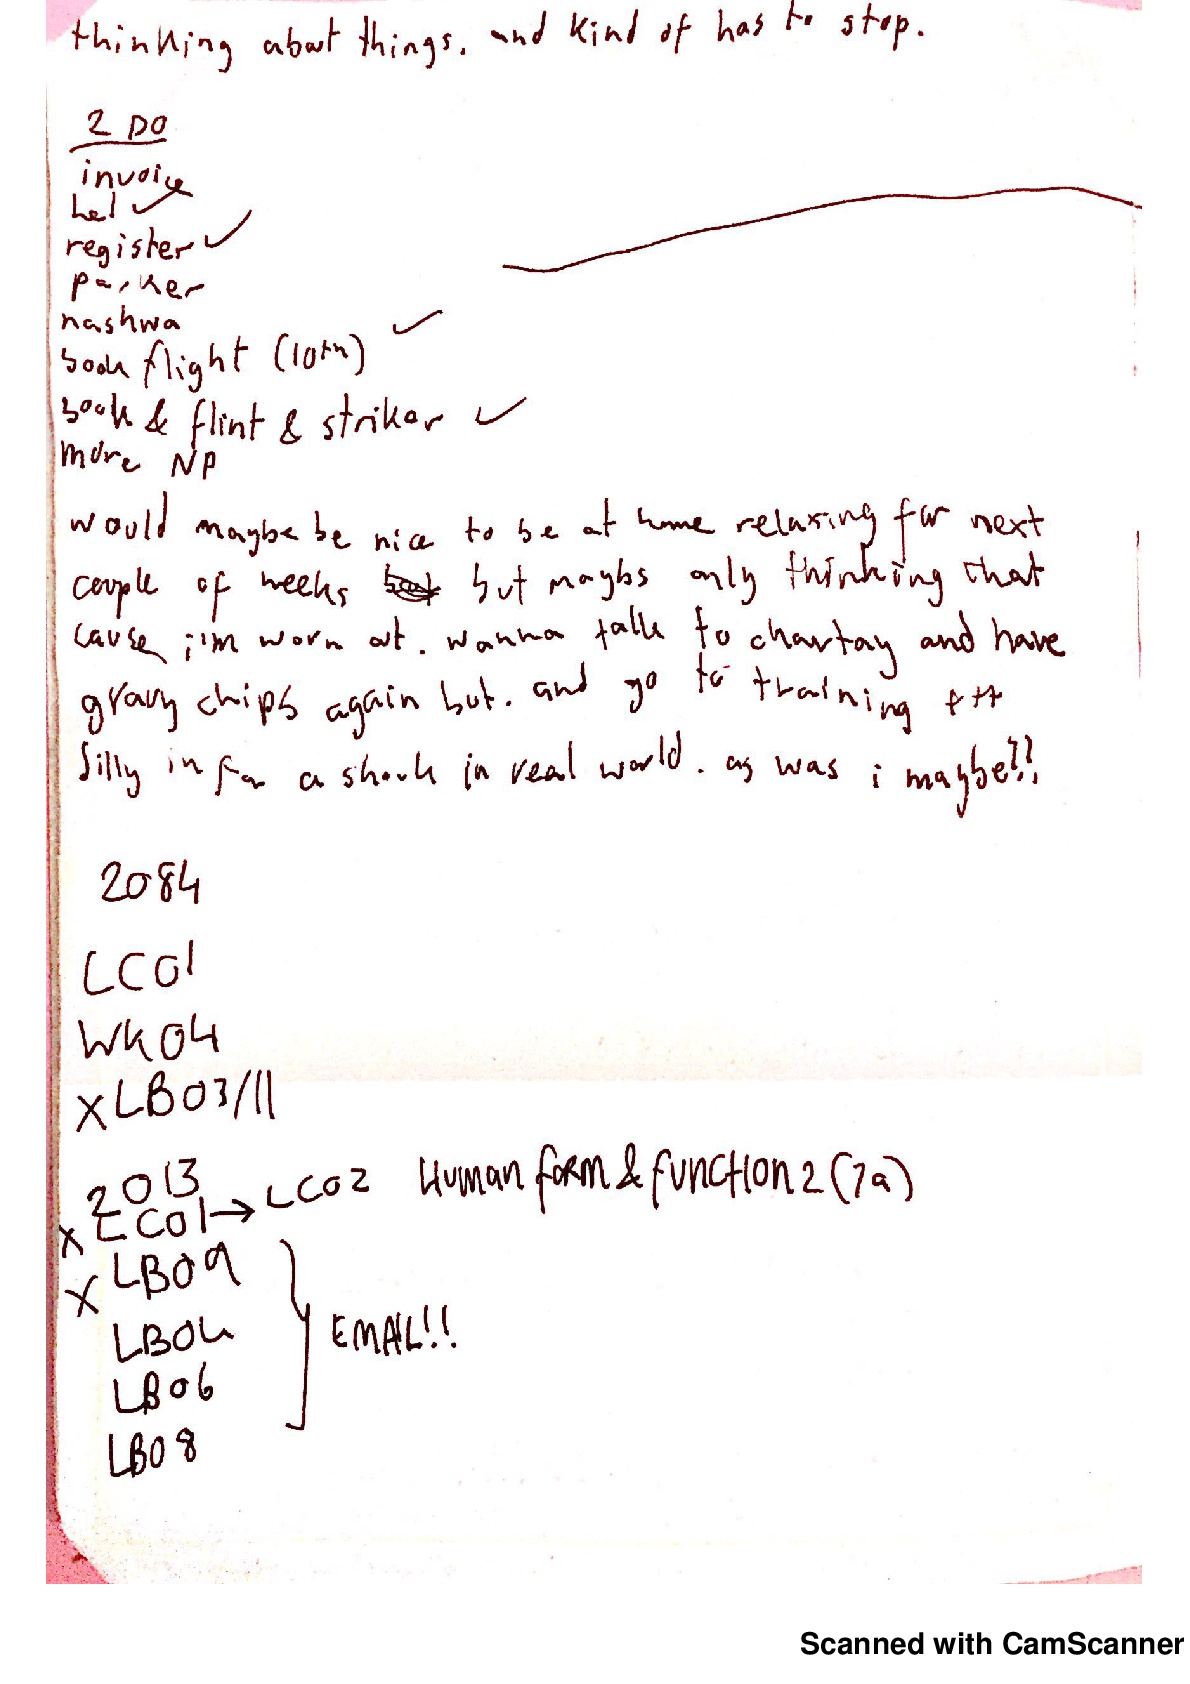 thinking about things. and kind of has to stop.
2 DO
invoice
hel ✓
register ✓
parker
nashwa
book flight (10th) ✓
book & flint & striker ✓
more NP
would maybe be nice to be at home relaxing for next
couple of weeks but maybs only thinking that
cause i'm worn out. wanna talk to chartay and have
gravy chips again but. and go to training ttt
silly in for a shock in real world. as was i maybe!!
2084
LC01
WK04
X LB03/11
2013
X LC01 → LC02 Human form & function 2 (7a)
X LB09
LB04
EMAIL!!
LB06
LB08
Scanned with CamScanner